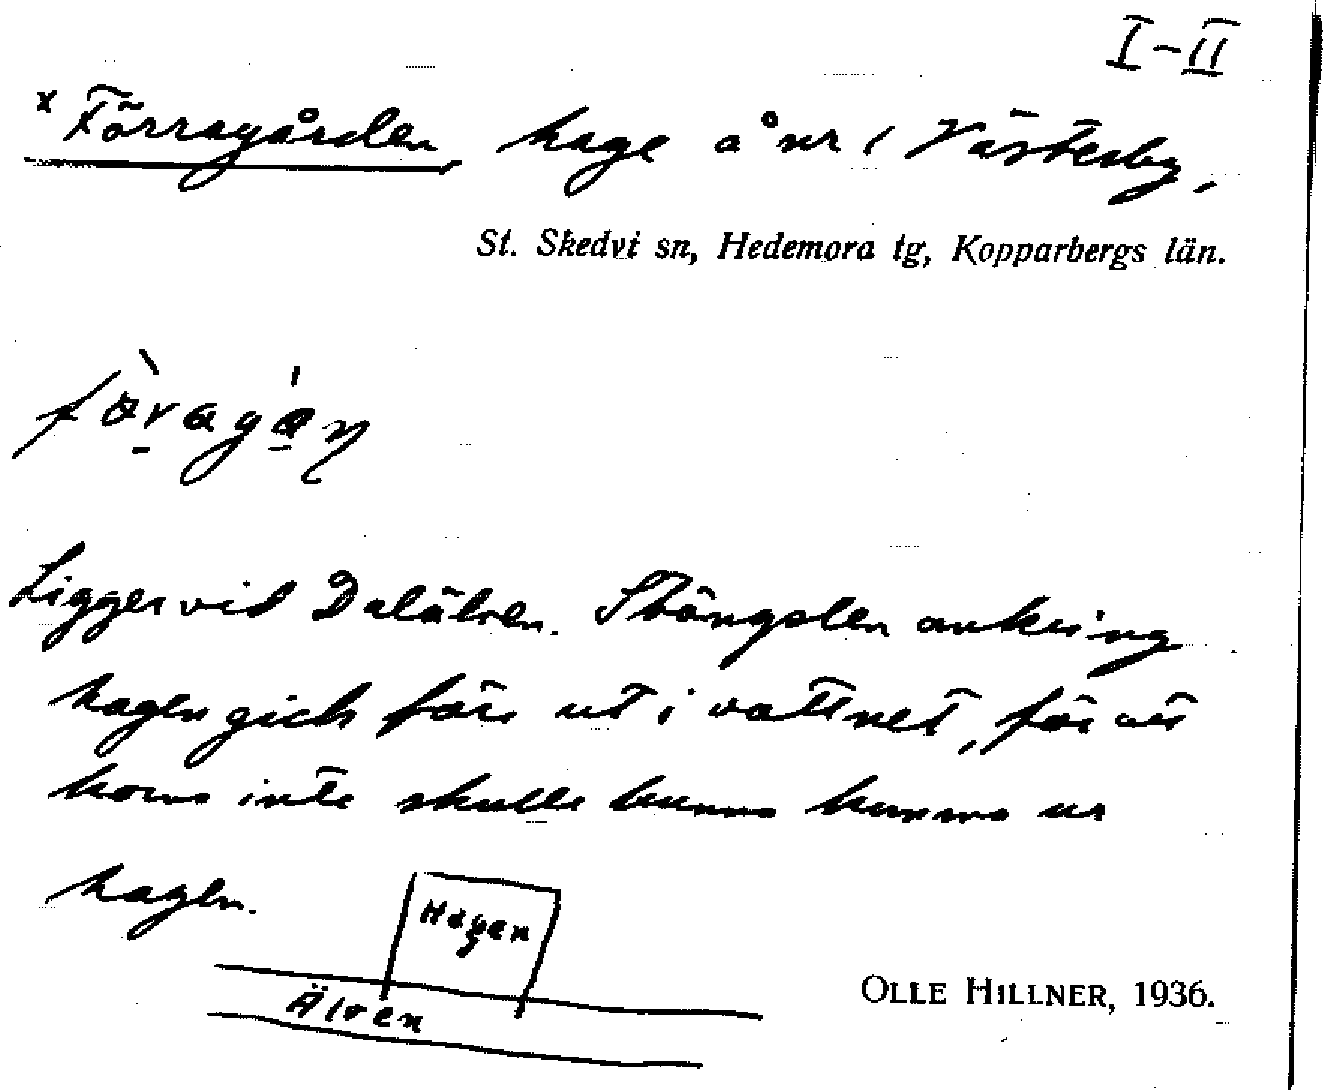 I-II
x Förragården, hage å nr 1 Västerby,
St. Skedvi sn, Hedemora tg, Kopparbergs län.
Ligger vid Dalälven. Stängslen omkring
hagen gick förr ut i vattnet, för att
korna inte skulle kunna komma ur
hagen.
Hagen
Älven
OLLE HILLNER, 1936.